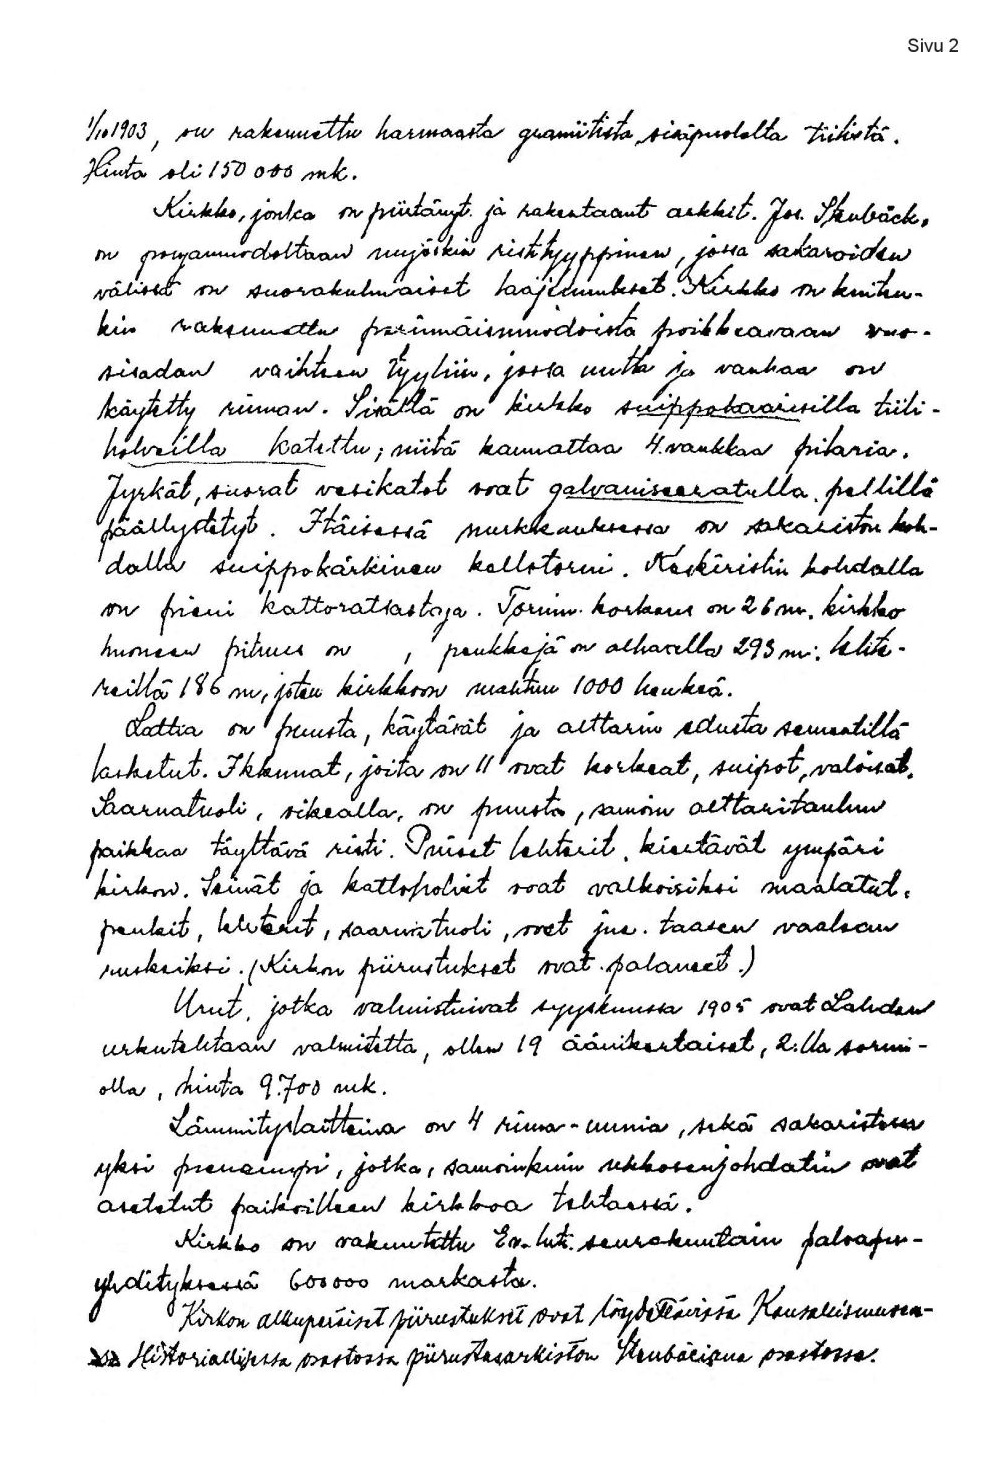 Sivu 2
1/10 1903, on rakennettu harmaasta graniitista, sisäpuolelta tiilistä.
Hinta oli 150 000 mk.
Kirkko, jonka on piirtänyt ja rakentanut arkkit. Jos. Stenbäck,
on pohjamuodoltaan
ristityyppinen, jossa sakaroiden
välissä on suorakulmaiset laajennukset. Kirkko on kuiten-
kin rakennettu perinnäismuodoista poikkeavaan vuo-
sisadan vaihteen tyyliin, jossa uutta ja vanhaa on
käytetty rinnan. Sisältä on kirkko suippokaarisilla tiili-
holveilla katettu; niitä kannattaa 4 vankkaa pilaria.
Jyrkät, suorat vesikatot ovat galvaniseeratulla pellillä
päällystetyt. Itäisessä nurkkauksessa on sakariston koh-
dalla suippokärkinen kellotorni. Keskiristin kohdalla
on pieni kattoratsastaja. Tornin korkeus on 26 m. kirkko
huoneen pituus on , penkkejä on alhaalla 293 m. lehte-
reillä 186 m, joten kirkkoon mahtuu 1000 henkeä.
Lattia on puusta, käytävät ja alttarin edusta sementillä
lasketut. Ikkunat, joita on 11 ovat korkeat, suipot, valoisat.
Saarnatuoli, oikealla, on puusta, samoin alttaritaulun
paikkaa täyttävä risti. Puiset lehterit, kiertävät ympäri
kirkon. Seinät ja kattoholvit ovat valkoisiksi maalatut.
penkit, lehterit, saarnatuoli, ovet jne. taasen vaalean
ruskeiksi. (Kirkon piirustukset ovat palaneet.)
Urut, jotka valmistuivat syyskuussa 1905 ovat Lahden
urkutehtaan valmistetta, ollen 19 äänikertaiset, 2:lla sormi-
olla, hinta 9.700 mk.
Lämmityslaitteina on 4 -uunia, sekä sakaristossa
yksi pienempi, jotka, samoinkuin ukkosenjohdatin ovat
asetetut paikoilleen kirkkoa tehtaessä.
Kirkko on vakuutettu Ev. lut. seurakuntain paloapu-
yhdityksessä 600000 markasta.
Kirkon alkuperäiset piirustukset ovat löydettävissä Kansallismuseon-
Historiallisessa osastossa piirustusarkiston Stenbäckin osastossa.